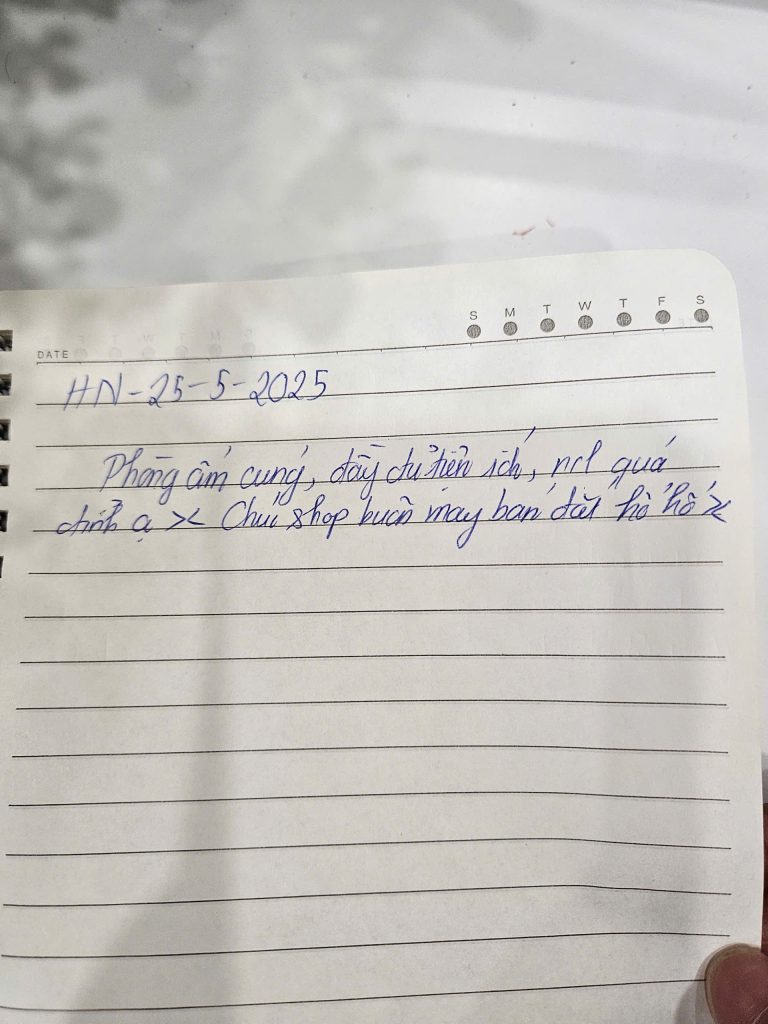 S M T W T F S
DATE
HN-25-5-2025
Phòng ấm cúng, đầy đủ tiện ích, nd quá
đỉnh ạ >< Chúc shop buôn may bán đắt hố hố ><